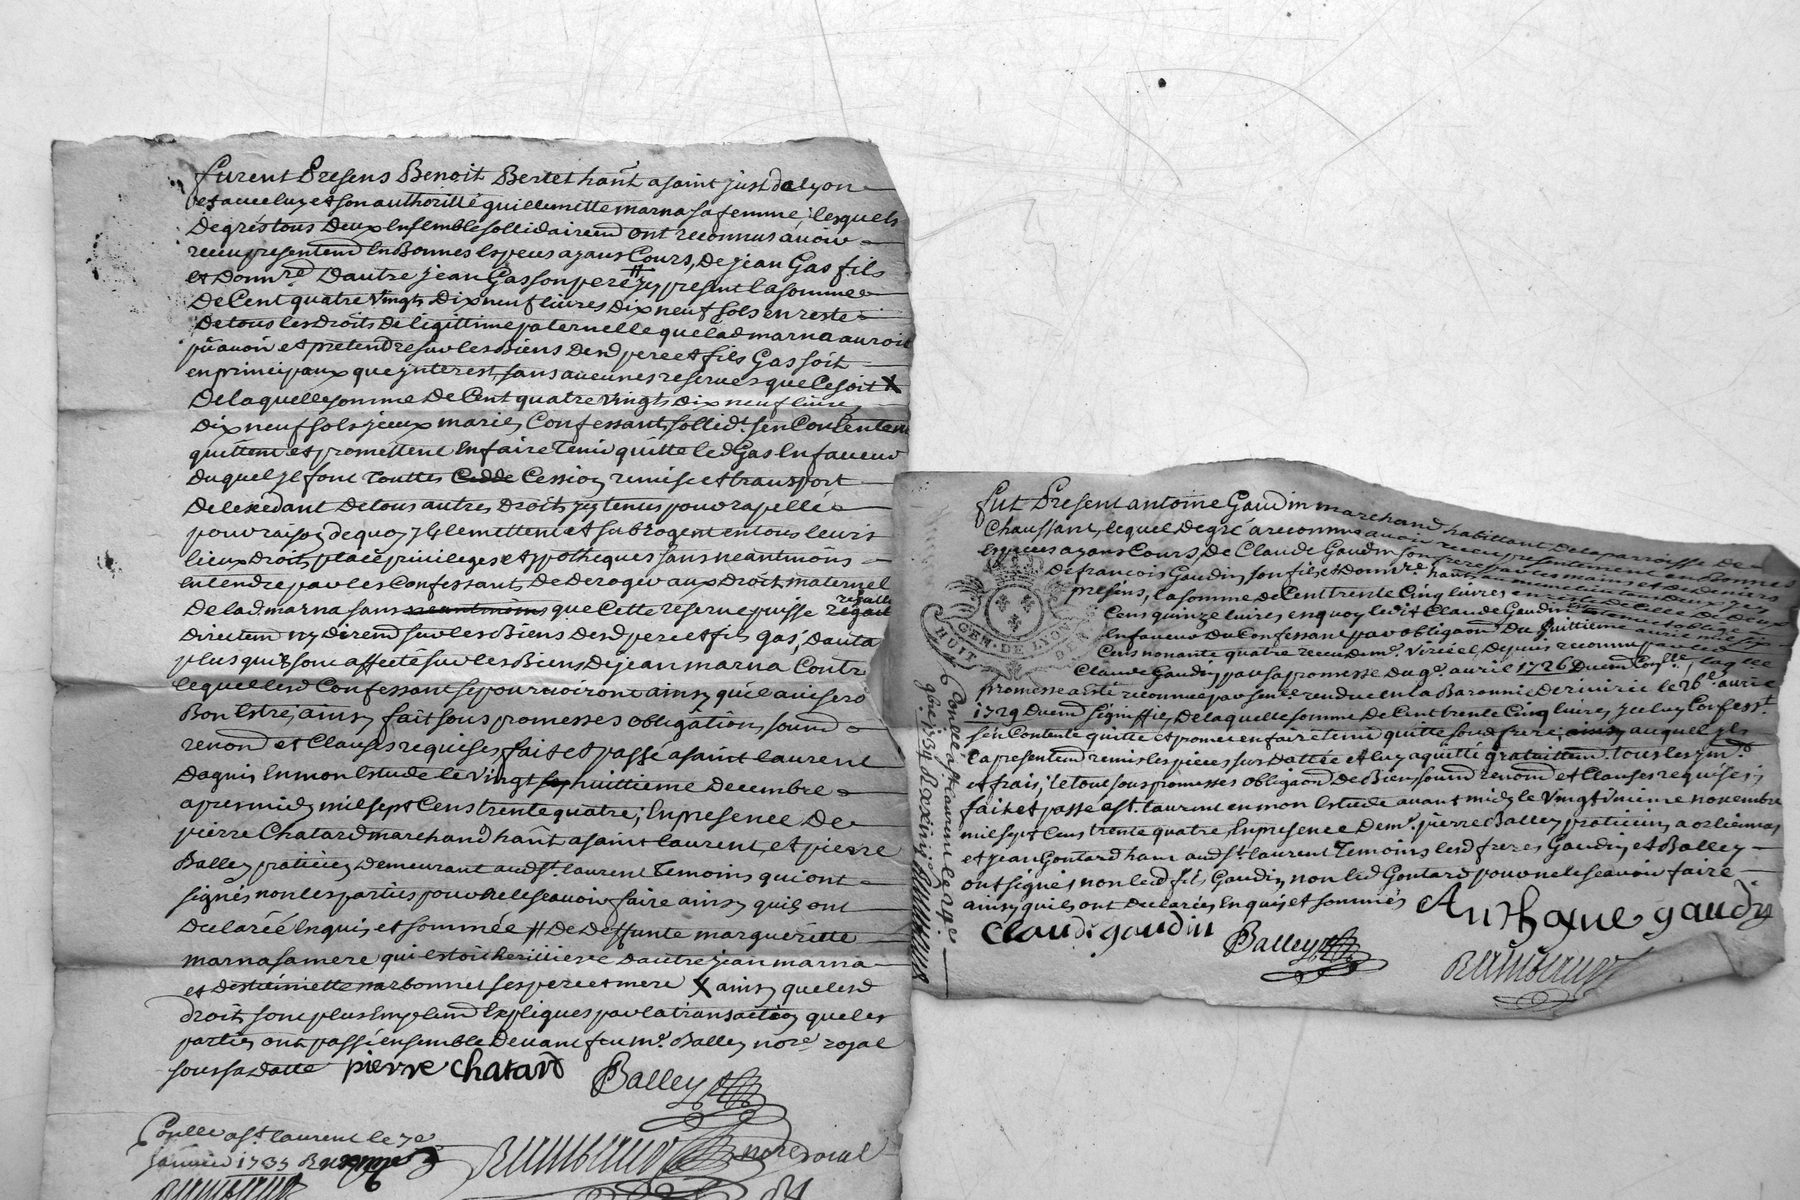 furent Presens Benoit Bertet hant a saint just de lyon
et avec luy et son authoritté guillemette marna sa femme, lesquels
De grés tous Deux Ensemble sollidairemt ont reconnus avoir
receu presentemt En Bonnes Especes ayans Cours, De jean Gas fils
et Donnre Dautre jean Gas son pere # jcy present la somme
De Cent quatre vingts Dix neuf livres Dix neuf sols en reste
De tous les Droits De légittime paternelle que lad marna auroit
pû avoir et prétendre sur les Biens Desd pere et fils Gas soit
en principaux que jnterest, sans aucunes reserves que Ce soit X
De laquelle somme De Cent quatre vingts Dix neuf livres
Dix neuf sols jceux mariés Confessants sollidt. sen Contentent
quittent et promettent En faire Tenir quitte led Gas En faveur
Duquel jls font Touttes Cedde Cession remise et transport
De lexcédant De tous autres Droits jcy tenus pour rapellés
pour raison De quoy jls le mettent et subrogent en tous leurs
lieux Droits place privileges et ypotheques sans neantmoins
Entendre par les Confessants De Deroger aux Droits maternel
De lad marna sans neantmoins que Cette reserve puisse
Directemt ny Jndiremt sur les Biens Desd pere et fils gas, Dauta
plus quils sont affecté sur les Biens De jean marna Contre
lequel lesd Confessants se pourvoiront ainsy quil avisero
Bon Estre, ainsy fait sous promesses obligâtion, soumd
renond et Clauses requises, fait et passé a saint laurent
Dagny En mon Estude le vingt sep huittieme Decembre
apres midy mil sept Cens trente quatre; En presence De
pierre Chatard marchand hant a saint laurent, et pierre
Balley praticien Demeurant aud st. laurent Temoins qui ont
signés non les parties pour ne le scavoir faire ainsy quils ont
Declarée Enquis et sommée # De Deffunte marguerette
marna sa mere qui estoit herittiere Dautre jean marna
et narbonnet ses pere et mere X ainsy que lesd
droits sont plus Emplemt Expliqués par la transaction que les
parties ont passé ensemble Devant feu me. Balley nore royal
sous sa Datte pierre chatard Balley
Conllé a st laurent le 7e
janvier 1735 nore roial
fut Present antoine Gaudin marchand habittant De la parroisse De
Chaussant, lequel De gré a reconnu avoir receu presentement en bonnes
Especes ayans Cours, De Claude Gaudin son frere par les mains et Deniers
De françois Gaudin son fils et Donnre. hant
presens, la somme De Cent trente Cinq livres en reste De celle De Deux
Cens quinze livres en quoy ledit Claude Gaudin
En faveur Du Confessant par obligaon Du huittieme avril mil sep
Cens nonante quatre receu De me. Depuis reconnu par led
Claude Gaudin par sa promesse Du 9e. avril 1726 Duemt Conllé, laqlle
promesse a esté reconnue par sence. rendue en la Baronnie De riverie le 26e. avril
1729 Duemt signiffiée, De laquelle somme De Cent trente Cinq livres, jceluy Confesst.
sen Contente quitte et promet en faire tenir quitte sond frere, ainsy auquel jls
a presentemt remis les pieces sus Dattée et luy aquitté gratuittemt. tous les jnts.
et frais; le tout sous promesses obligaon De Biens soumd renond et Clauses requises;
fait et passé a st. laurent en mon Estude avant midy le vingt unieme novembre
mil sept Cens trente quatre, En presence De me. pierre Balley praticien a orlienas
et jean Goutard hant aud st. laurent Temoins lesd freres Gaudin et Balley
ont signés non led fils Gaudin non led Goutard pour ne le scavoir faire
ainsy quils ont Declarés Enquis et sommés Anthoyne gaudy
Claude gaudin Balley
GEN. DE LYON
Conllé a st laurent le 29e
9bre 1734